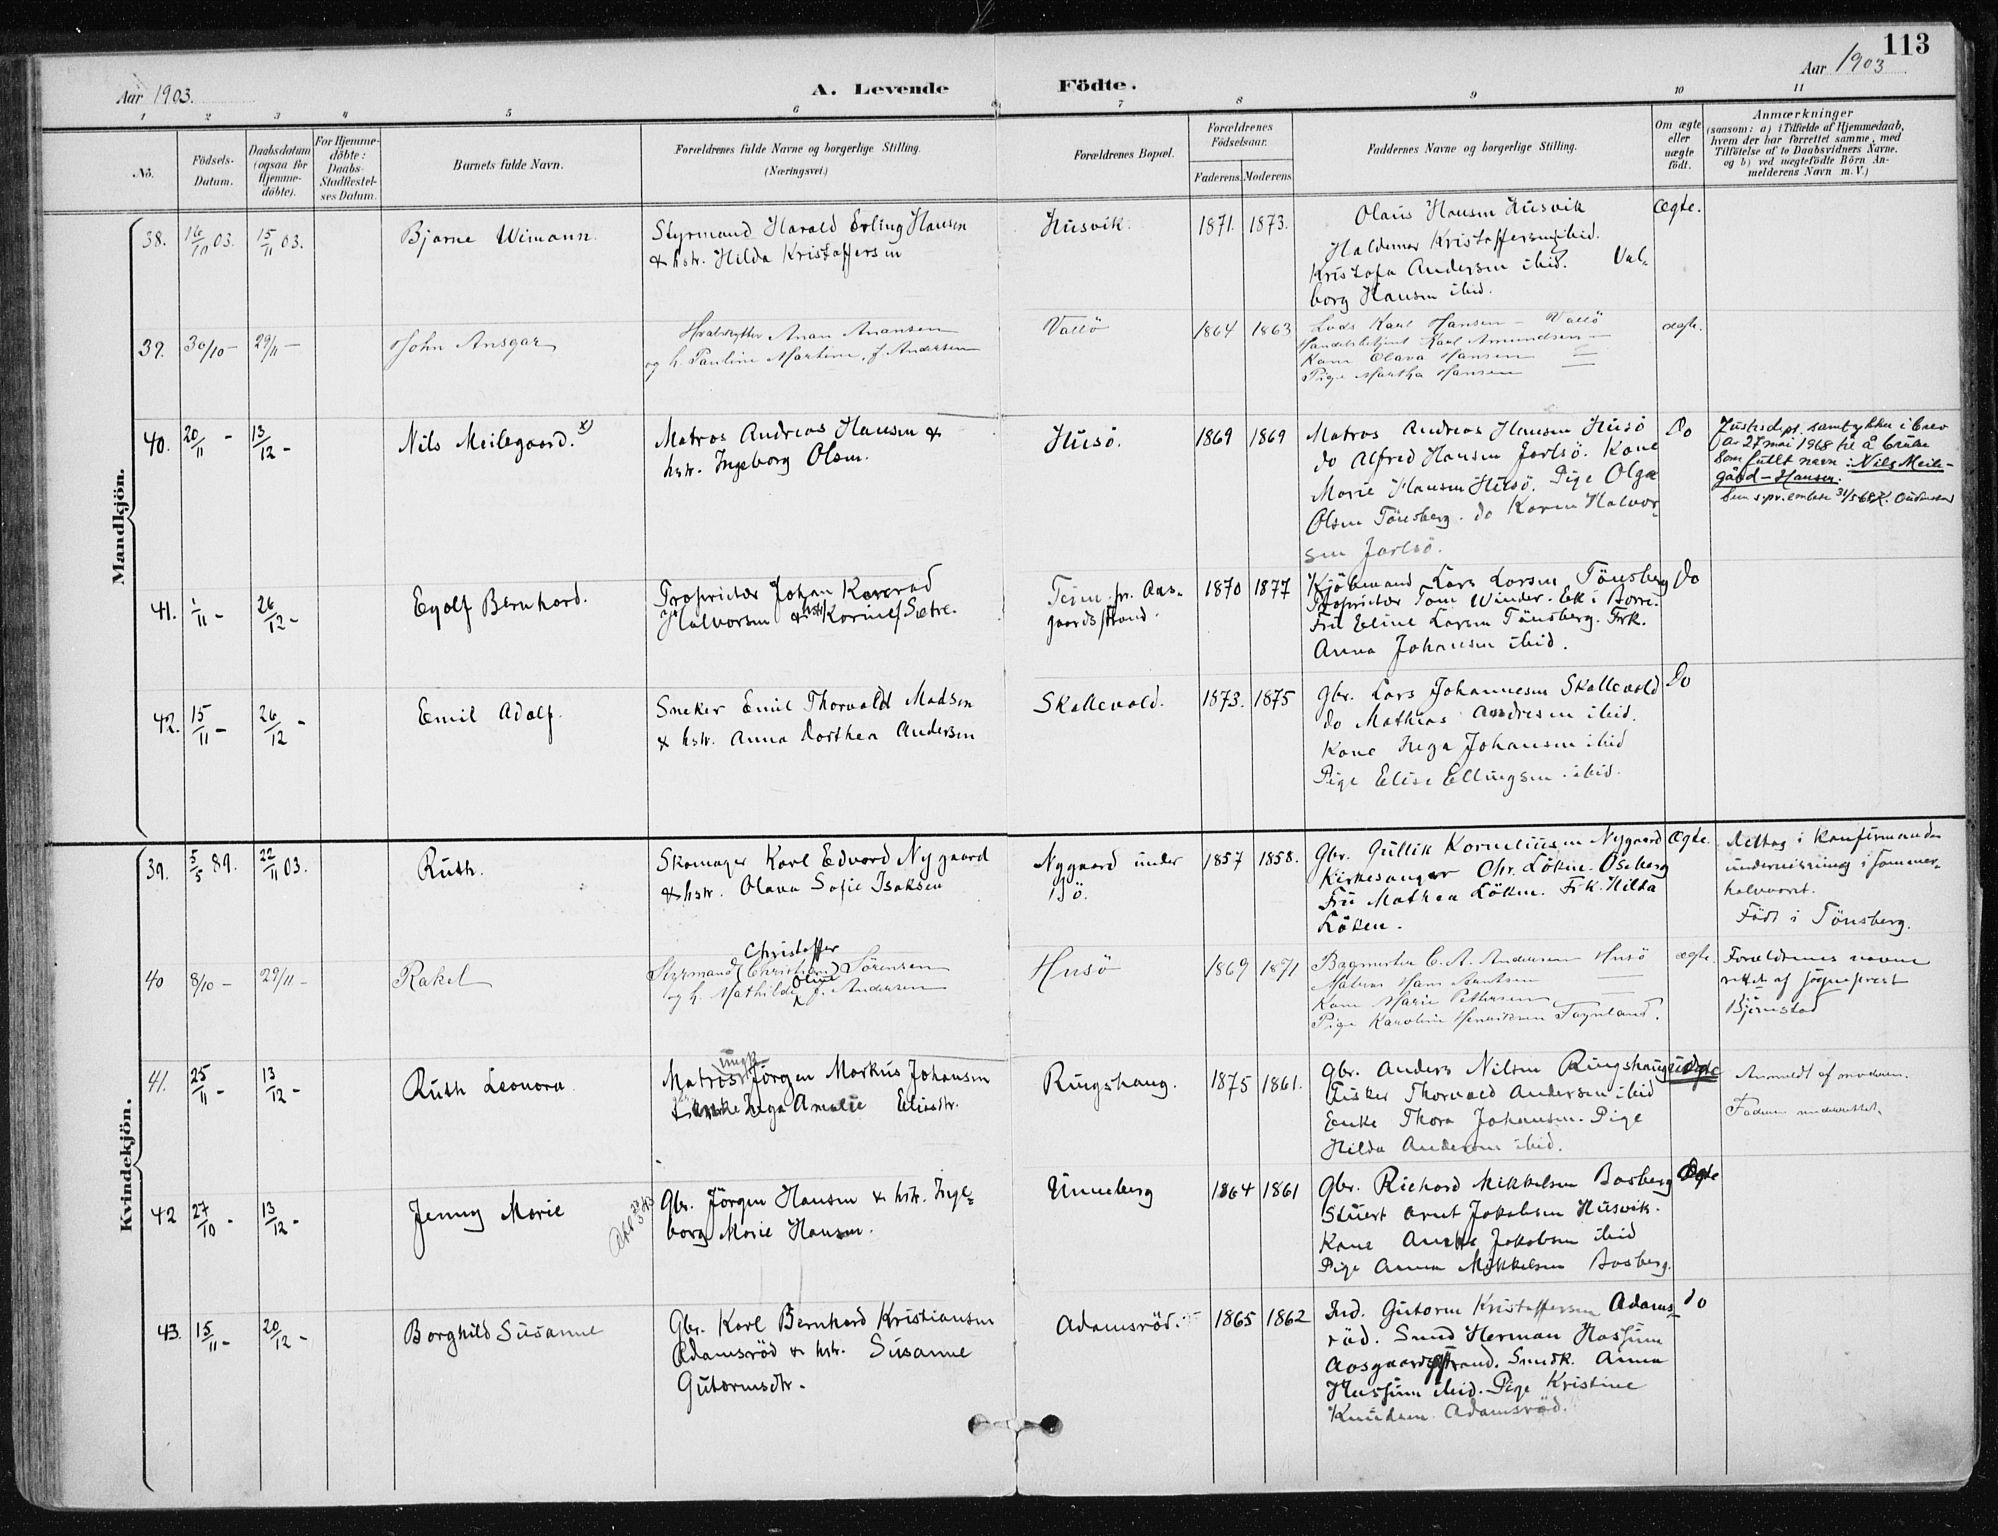 113
Aar 1903.
A. Levende
Födte.
Aar 1903
1 2 3 4 5 6 6 7 8 9 10 11
No.
Födsels-Datum.
Daabsdatum (ogsaa för Hjemmedöbte).
For Hjemmedöbte: Daabs-Stadfæstelses Datum.
Barnets fulde Navn.
Forældrenes fulde Navne og borgerlige Stilling.
(Næringsvei.)
Forældrenes Bopæl.
Forældrenes Födselsaar.
Faderens. Moderens.
Faddernes Navne og borgerlige Stilling.
Om ægte eller uægte födt.
Anmærkninger
(saasom: a) i Tilfælde af Hjemmedaab, hvem der har forrettet samme, med Tilföielse af to Daabsvidners Navne, og b) ved uægtefödte Börn Anmelderens Navn m. V.)
Mandkjön.
38. 16/10 03. 15/11 03. Bjarne Wimann.
Styrmand Harald Erling Hansen
& hstr. Hilda Kristoffersen
Husvik. 1871. 1873.
Olaus Hansen Husvik
Haldemar Kristoffersen ibid.
Kristofa Andersen ibid. Val-
borg Hansen ibid.
Ægte.
39. 30/10 - 29/11 - John Ansgar
Hvalskytter Anan Anansen
og h. Pauline Martine, f. Andersen
Vallö 1864 1863
Lods Karl Hansen - Vallö
Handelsbetjent Karl Amundsen -
Kone Olava Hansen =
Pige Martha Hansen =
ægte.
40. 20/11 - 13/12 - Nils Meilegaard. x)
Matros Andreas Hansen &
hstr. Ingeborg Olsen.
Husö. 1869 1869
Matros Andreas Hansen Husö
do Alfred Hansen Jarlsö. Kone
Marie Hansen Husö. Pige Olga
Olsen Tönsberg. do Karen Halvor-
sen Jarlsö.
Do
Justisdept. samtykker i brev
av 27 mai 1968 til å bruke
som fullt navn: Nils Meile-
gård-Hansen.
Sem s.pr.embete 31/5 68
41. 1/11 - 26/12 - Eyolf Bernhard.
Proprietær Johan Konrad
Halvorsen & hstr. Karine Sætre.
Teien pr. Aas-
gaardsstrand.
1870 1877
Kjöbmand Lars Larsen Tönsberg
Proprietær Tom Winder. Ek i Borre.
Fru Eline Larsen Tönsberg. Frk.
Anna Johansen ibid.
Do
42. 15/11 - 26/12 - Emil Adolf.
Sneker Emil Thorvald Madsen
& hstr. Anna Dorthea Andersen
Skallevold. 1873. 1875
Gbr. Lars Johannesen Skallevold
do Mathias Andresen ibid.
Kone Inga Johansen ibid
Pige Elise Ellingsen ibid.
Do
Kvindekjön.
39. 5/5 89. 22/11 03. Ruth.
Skomager Karl Edvard Nygaard
& hstr. Olava Sofie Isaksen
Nygaard under
Bö.
1857 1858.
Gbr. Gullik Korneliusen Nygaard
Kirkesanger Chr. Löken. Oseberg
Fru Mathea Löken. Frk. Hilda
Löken.
Ægte.
Deltog i konfirmander
undervisning i sommer-
halvaaret.
Födt i Tönsberg.
40 8/10 - 29/11 - Rakel
Christoffer
Styrmand (Christian) Sörensen
og h. Mathilde Oline f. Andersen
Husö 1869 1871
Bagmester C. A. Andersen Husö
Matros Hans Arntsen
Kone Marie Pettersen
Pige Karoline Henriksen Föynland.
ægte.
Forældrenes navne
rettet af sogneprest
Björnstad
41. 25/11 - 13/12 - Ruth Leonora
ungk.
Matros Jörgen Markus Johansen
Enke Inga Amalie Eliasdtr.
Ringshaug. 1875 1861.
Gbr. Anders Nilsen Ringshaug
Fisker Thorvald Andersen ibid
Enke Thora Johansen. Pige
Hilda Andersen ibid.
uægte
Anmeldt af moderen.
Faderen underrettet.
42 27/10 - 13/12 - Jenny Marie
Gbr. Jörgen Hansen & hstr. Inge-
borg Marie Hansen.
Unneberg 1864 1861
Gbr. Richard Mikkelsen Basberg
Stuert Arnt Jakobsen Husvik.
Kone Anette Jakobsen ibid
Pige Anna Mikkelsen Basberg.
Ægte
43. 15/11 - 20/12 - Borghild Susanne
Gbr. Karl Bernhard Kristiansen
Adamsröd & hstr. Susanne
Gutormsdtr.
Adamsröd. 1865 1862
Ind. Gutorm Kristoffersen Adams-
röd. Smed Herman Hassum
Aasgaardsstrand. Smedk. Anna
Hassum ibid. Pige Kristine
Knudsen Adamsröd.
do